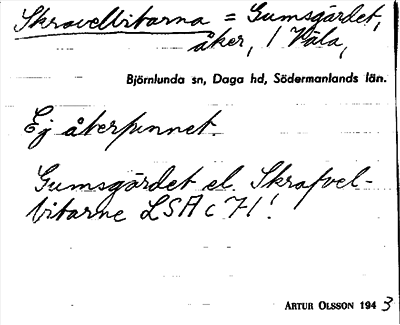 Skravelbitarna = Gumsgärdet,
åker, / Väla,
Björnlunda sn, Daga hd, Södermanlands län.
Ej återfunnet.
Gumsgärdet el. Skrafvel-
bitarne LSA C 71!
ARTUR OLSSON 1943